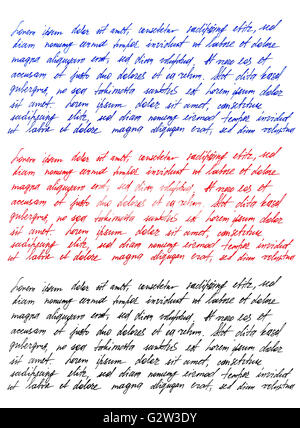 Lorem ipsum dolor sit amet, consetetur sadipscing elitr, sed
diam nonumy eirmod tempor invidunt ut labore et dolore
magna aliquyam erat, sed diam voluptua. At vero eos et
accusam et justo duo dolores et ea rebum. Stet clita kasd
gubergren, no sea takimata sanctus est Lorem ipsum dolor
sit amet. Lorem ipsum dolor sit amet, consetetur
sadipscing elitr, sed diam nonumy eirmod tempor invidunt
ut labore et dolore magna aliquyam erat, sed diam voluptua
Lorem ipsum dolor sit amet, consetetur sadipscing elitr, sed
diam nonumy eirmod tempor invidunt ut labore et dolore
magna aliquyam erat, sed diam voluptua. At vero eos et
accusam et justo duo dolores et ea rebum. Stet clita kasd
gubergren, no sea takimata sanctus est Lorem ipsum dolor
sit amet. Lorem ipsum dolor sit amet, consetetur
sadipscing elitr, sed diam nonumy eirmod tempor invidunt
ut labore et dolore magna aliquyam erat, sed diam voluptua
Lorem ipsum dolor sit amet, consetetur sadipscing elitr, sed
diam nonumy eirmod tempor invidunt ut labore et dolore
magna aliquyam erat, sed diam voluptua. At vero eos et
accusam et justo duo dolores et ea rebum. Stet clita kasd
gubergren, no sea takimata sanctus est Lorem ipsum dolor
sit amet. Lorem ipsum dolor sit amet, consetetur
sadipscing elitr, sed diam nonumy eirmod tempor invidunt
ut labore et dolore magna aliquyam erat, sed diam voluptua
alamy stock photo
G2W3DY
www.alamy.com